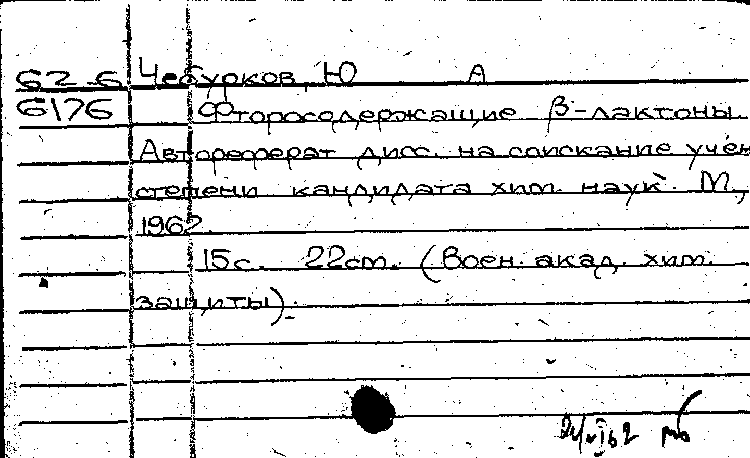 62-6 Чебурков, Ю А
6176 Фторосодержащие β-лактоны.
Автореферат дисс. на соискание учен
степени кандидата хим. наук. М.,
1962
15с. 22см. (Воен. акад. хим.
защиты).